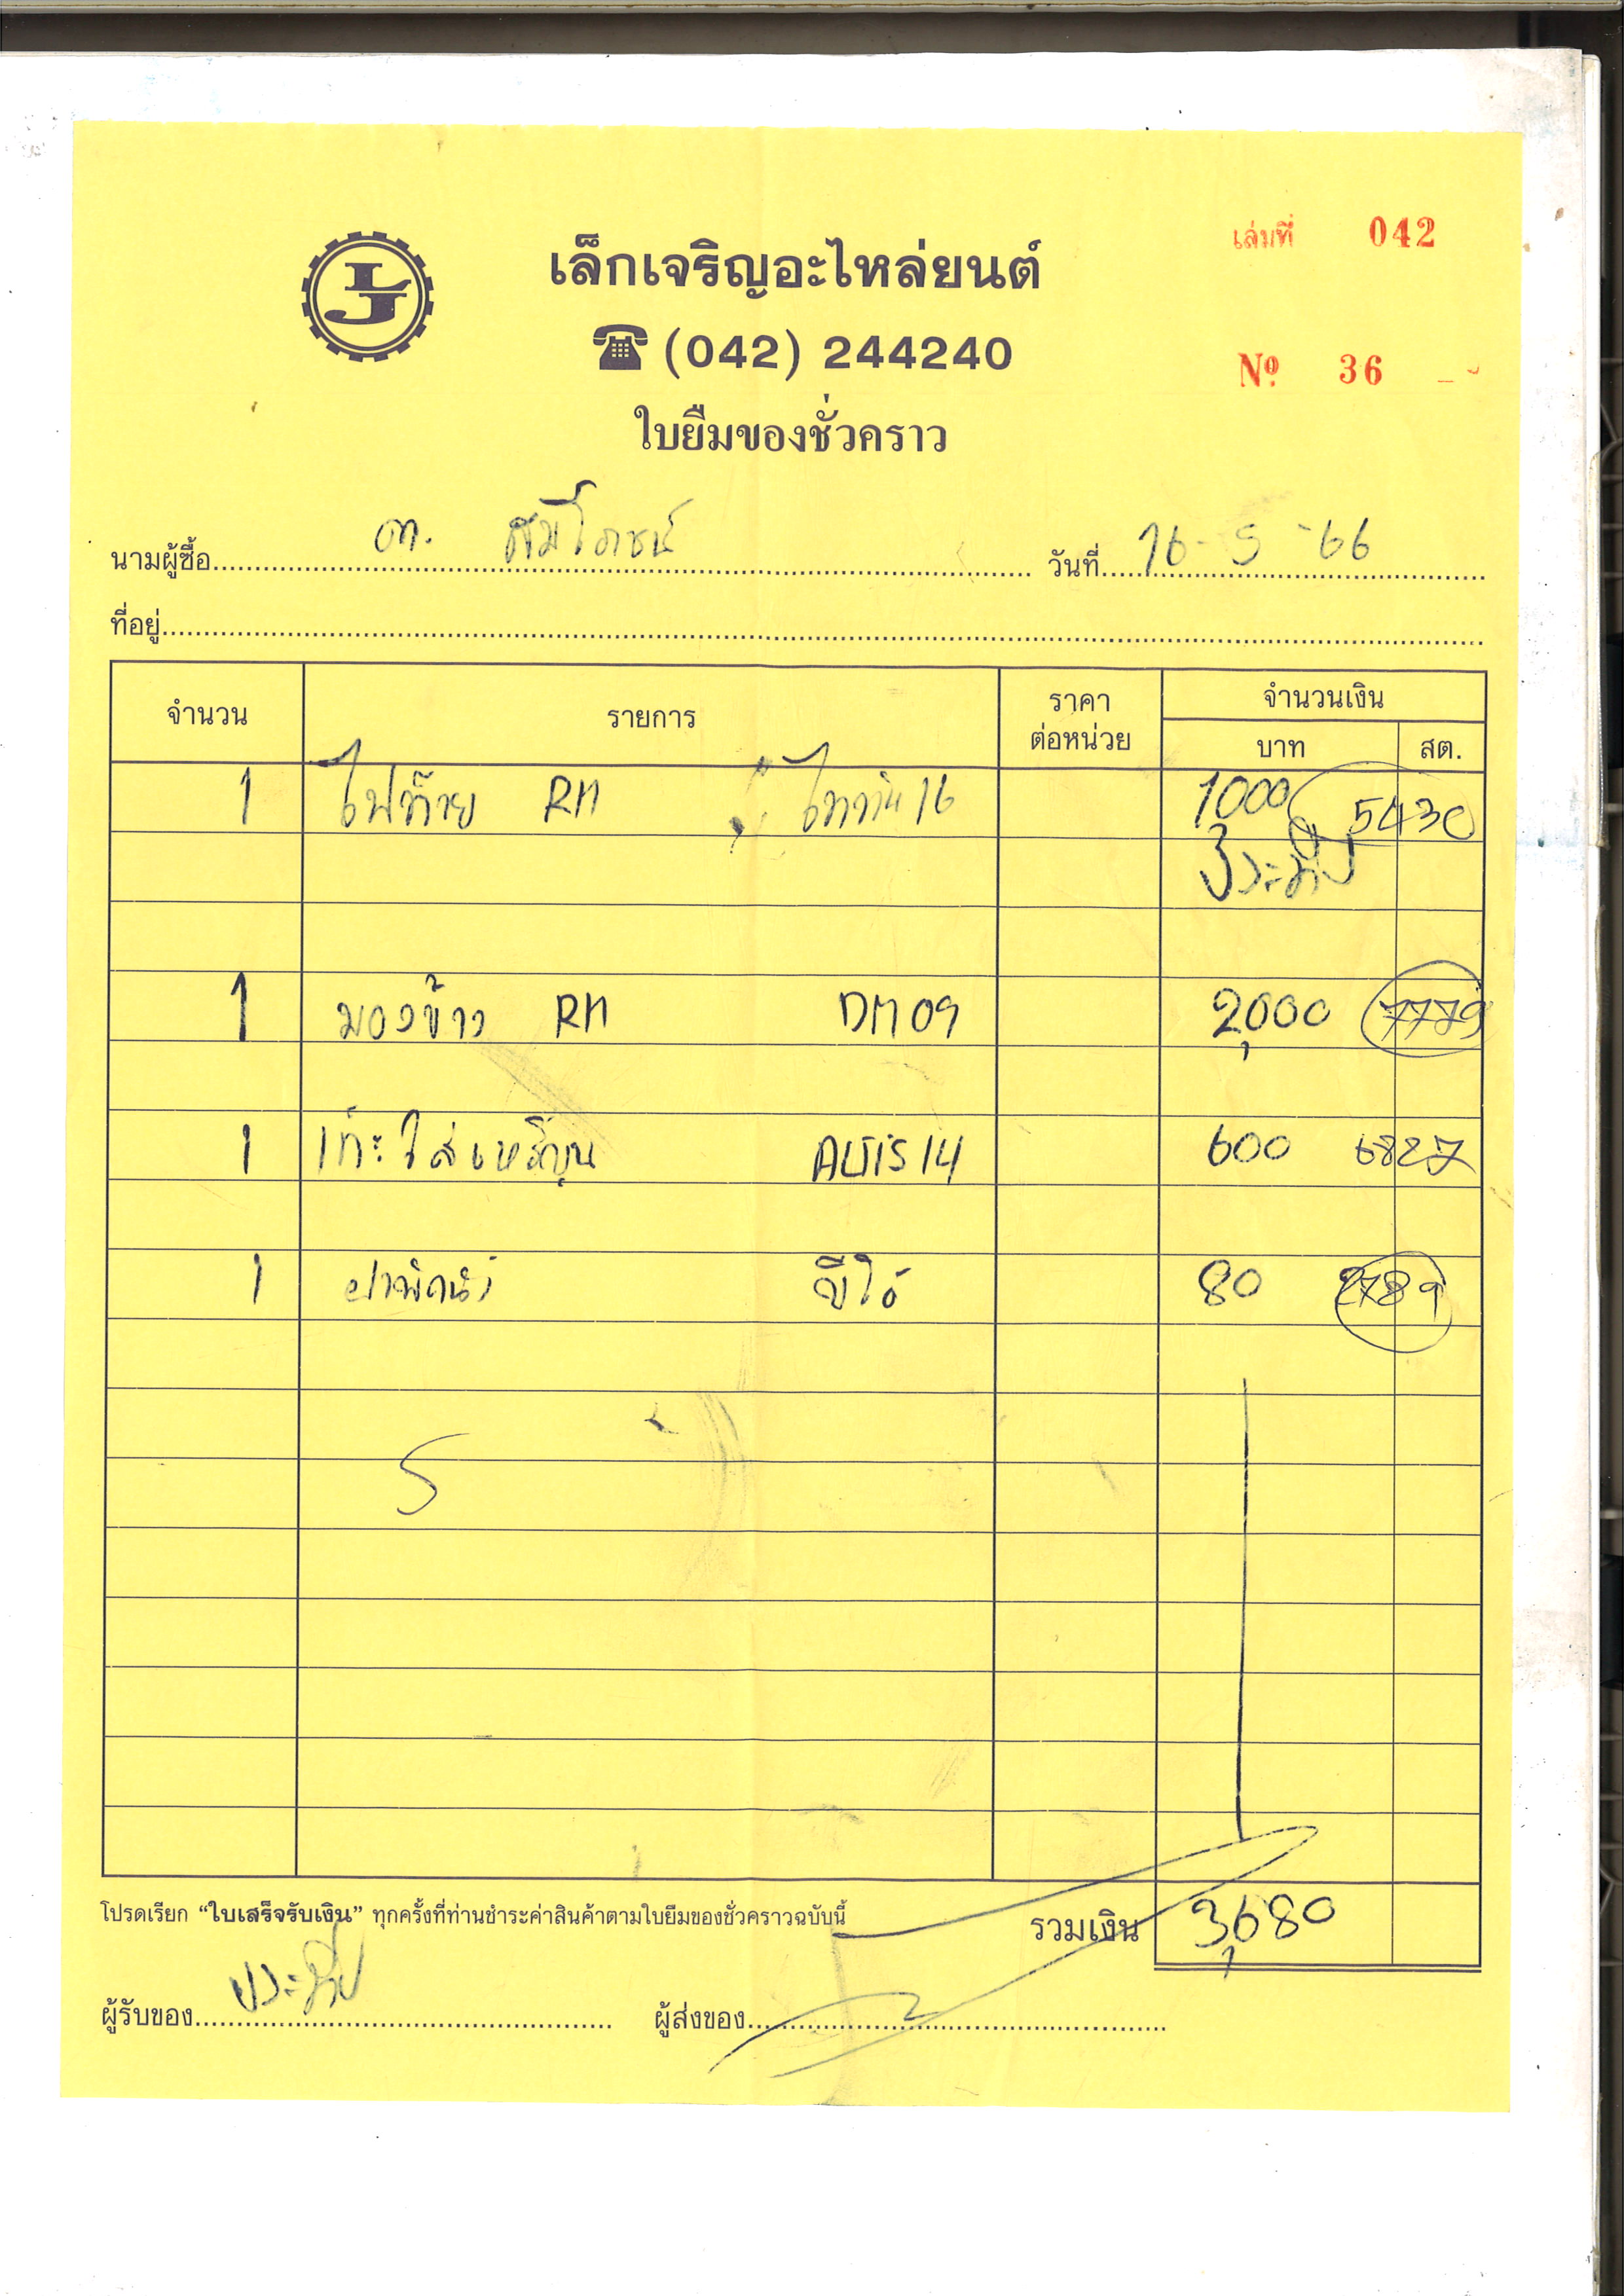 เล่มที่ 042
LJ
เล็กเจริญอะไหล่ยนต์
(042) 244240
Nº 36
ใบยืมของชั่วคราว
นามผู้ซื้อ วันที่ 16-5-66
ที่อยู่
จำนวน รายการ ราคาต่อหน่วย จำนวนเงิน
บาท สต.
1 ไฟท้าย RH ไททัน 16 1,000 5430
ประทีป
1 มองข้าง RH DM09 2,000 7779
1 เก๊ะใส่เหรียญ ALTIS 14 600 6827
1 ฝาพักน้ำ วีโก้ 80 2789
โปรดเรียก “ใบเสร็จรับเงิน” ทุกครั้งที่ท่านชำระค่าสินค้าตามใบยืมของชั่วคราวฉบับนี้
รวมเงิน 3,680
ผู้รับของ ประทีป ผู้ส่งของ